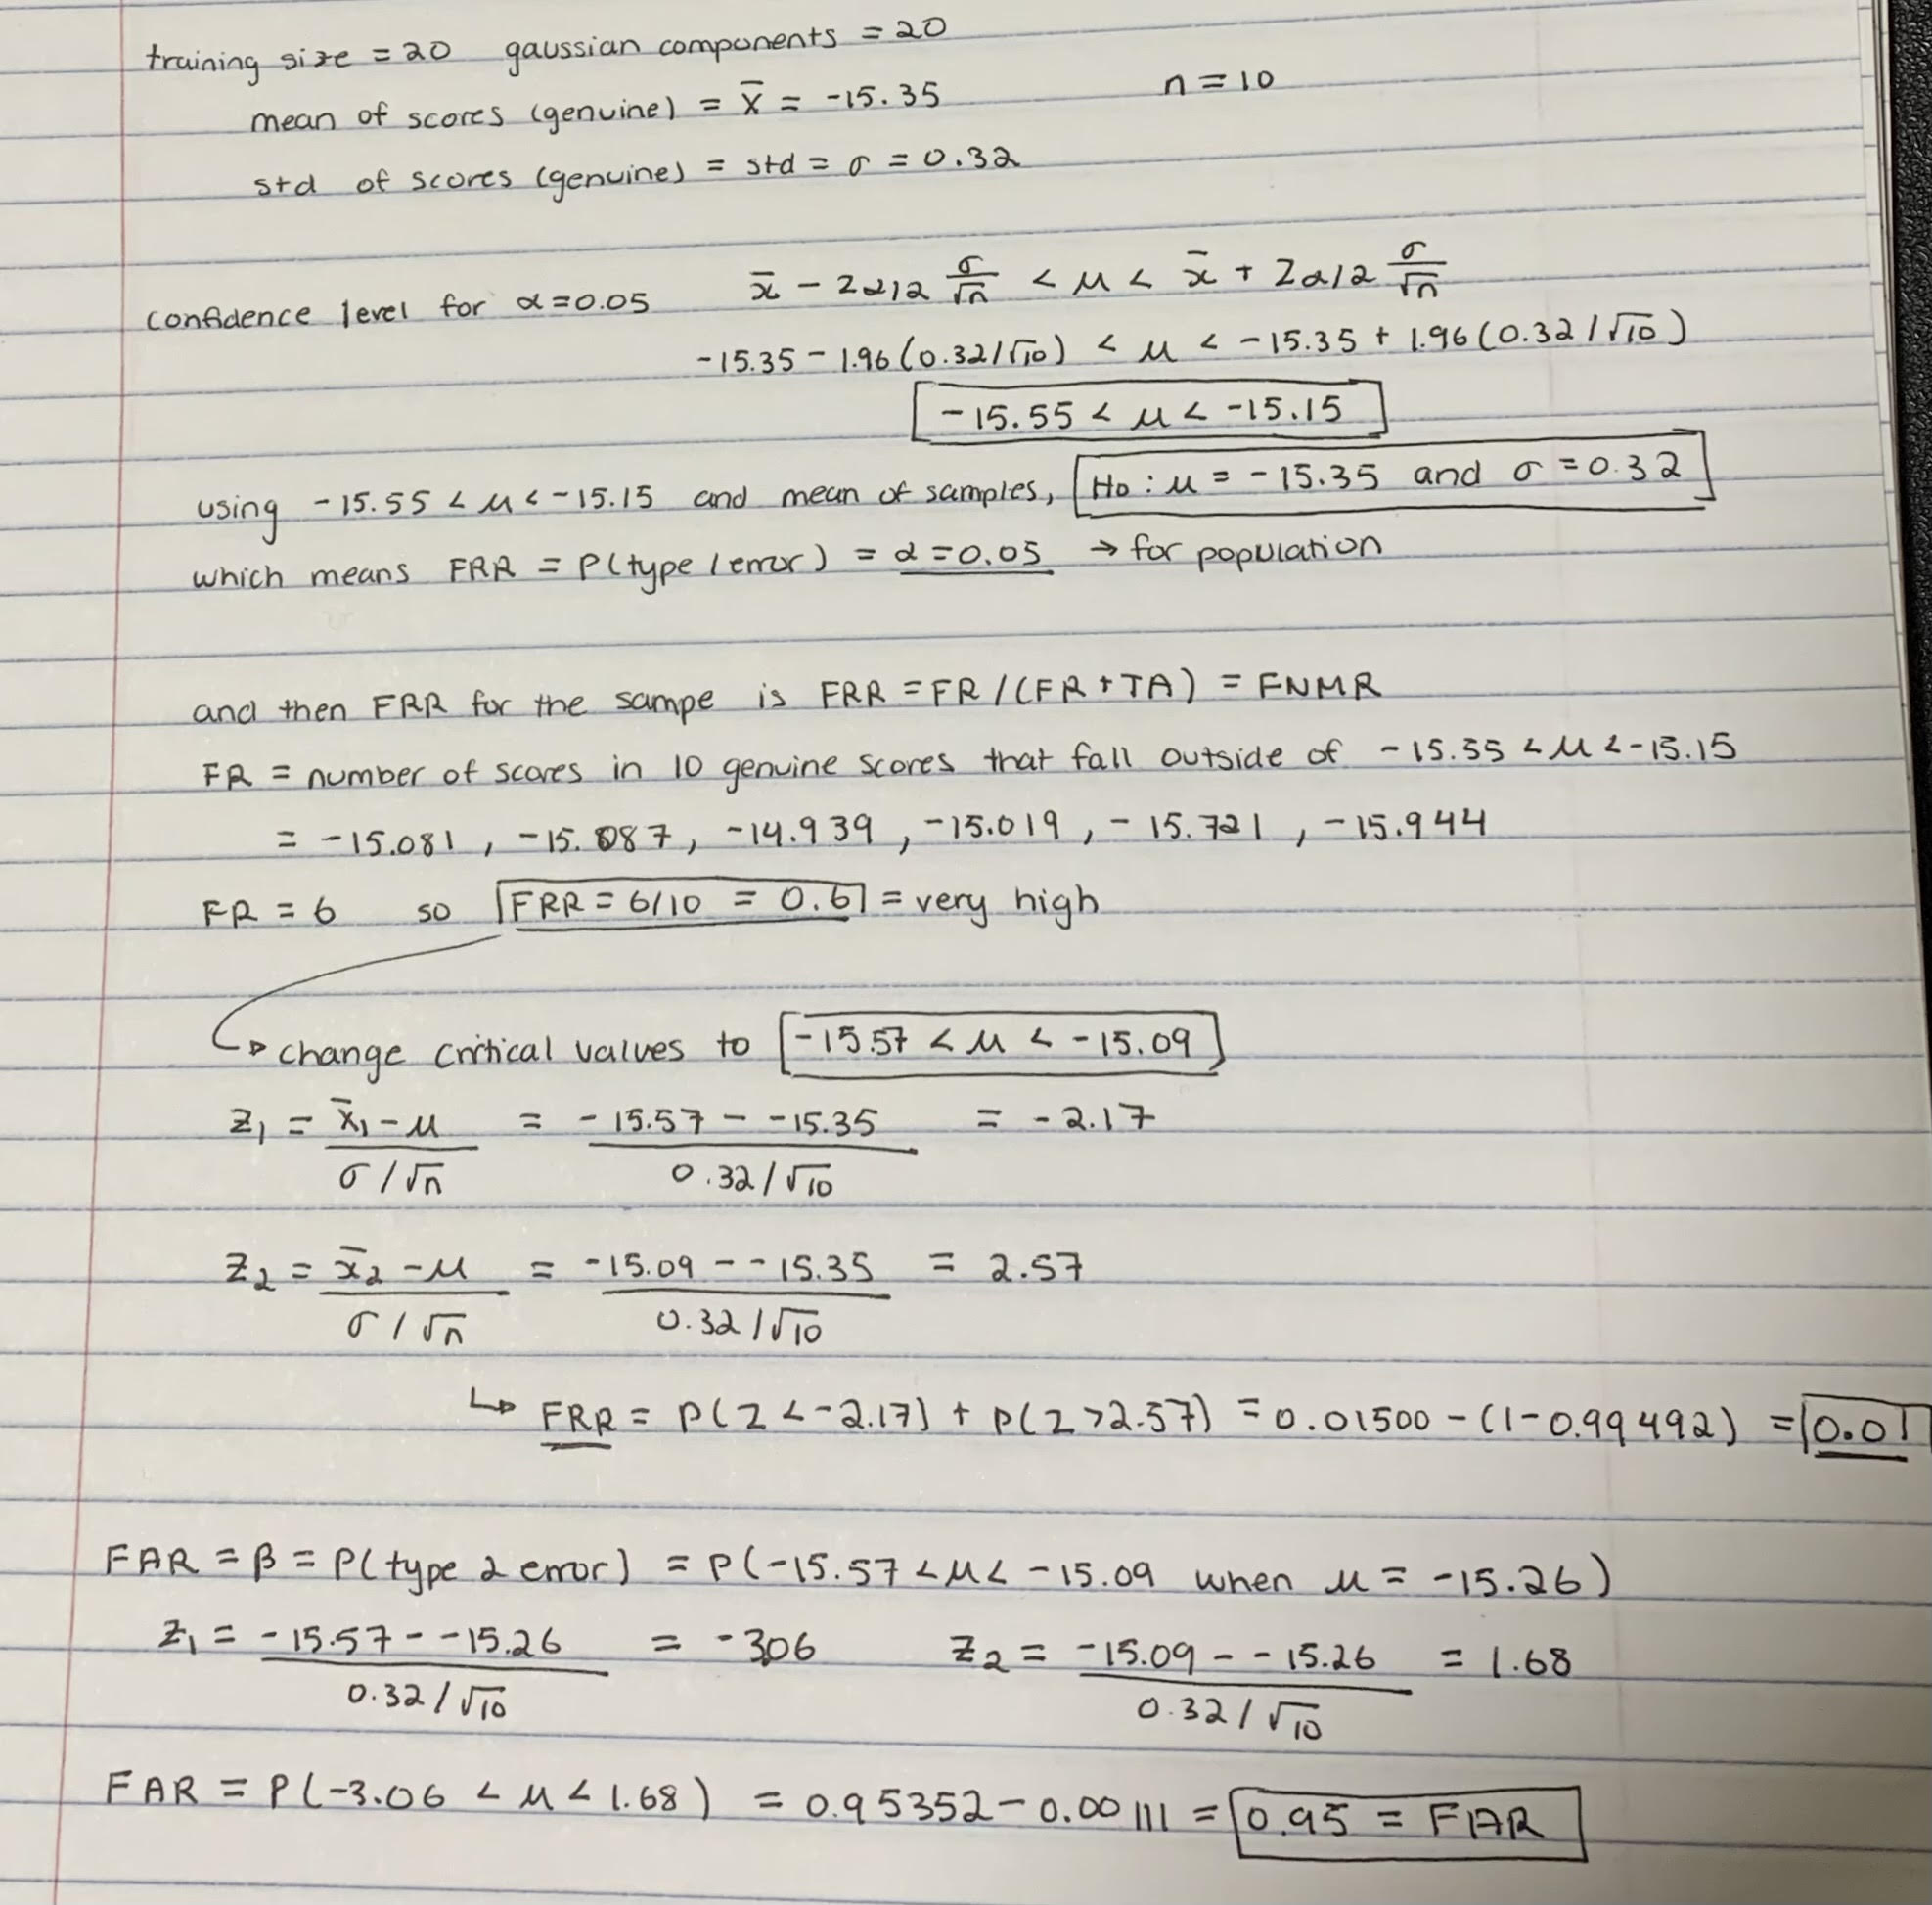 training size = 20 gaussian components = 20
mean of scores (genuine) = x̄ = -15.35 n = 10
std of scores (genuine) = std = σ = 0.32
confidence level for α=0.05 x̄ - Zα/2 σ/√n < μ < x̄ + Zα/2 σ/√n
-15.35 - 1.96(0.32/√10) < μ < -15.35 + 1.96(0.32/√10)
-15.55 < μ < -15.15
using -15.55 < μ < -15.15 and mean of samples, H0: μ = -15.35 and σ = 0.32
which means FRR = P(type 1 error) = α = 0.05 → for population
and then FRR for the sampe is FRR = FR/(FR+TA) = FNMR
FR = number of scores in 10 genuine scores that fall outside of -15.55 < μ < -15.15
= -15.081, -15.087, -14.939, -15.019, -15.721, -15.944
FR = 6 so FRR = 6/10 = 0.6 = very high
↳ change critical values to -15.57 < μ < -15.09
Z1 = (x̄1 - μ)/(σ/√n) = (-15.57 - -15.35)/(0.32/√10) = -2.17
Z2 = (x̄2 - μ)/(σ/√n) = (-15.09 - -15.35)/(0.32/√10) = 2.57
↳ FRR = P(Z < -2.17) + P(Z > 2.57) = 0.01500 - (1 - 0.99492) = 0.01
FAR = β = P(type 2 error) = P(-15.57 < μ < -15.09 when μ = -15.26)
Z1 = (-15.57 - -15.26)/(0.32/√10) = -3.06 Z2 = (-15.09 - -15.26)/(0.32/√10) = 1.68
FAR = P(-3.06 < μ < 1.68) = 0.95352 - 0.00111 = 0.95 = FAR